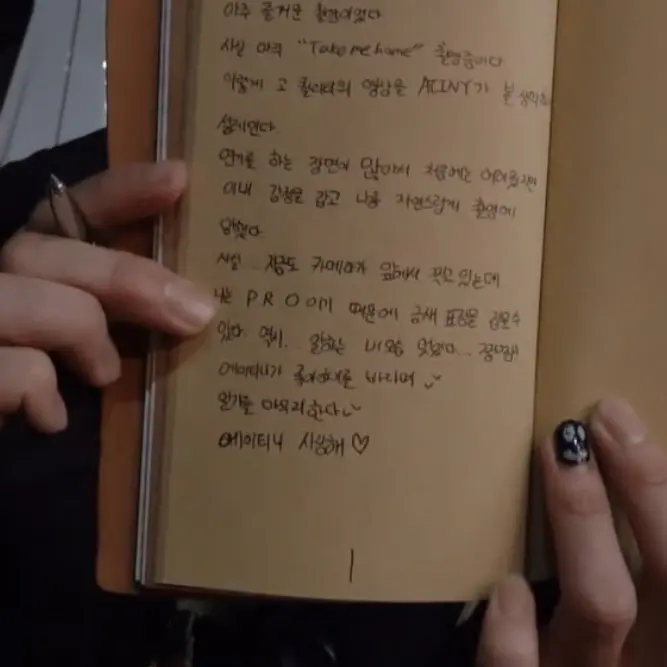 아주 즐거운 촬영이었다
사실 아직 "Take me home" 촬영중이다
이렇게 고 퀄리티의 영상을 ATINY가 본
설레인다
연기를 하는 장면이 많아서 처음에는 어려웠지만
이내 감정을 잡고 나름 자연스럽게 촬영에
사실... 지금도 카메라가 앞에서 찍고 있는데
나는 P R O 이기 때문에 금새 표정을 감출수
있다 역시... 일하는 내 모습 멋있다...
에이티니가 좋아해주길 바라며
일기를 마무리한다
에이티니 사랑해 ♡